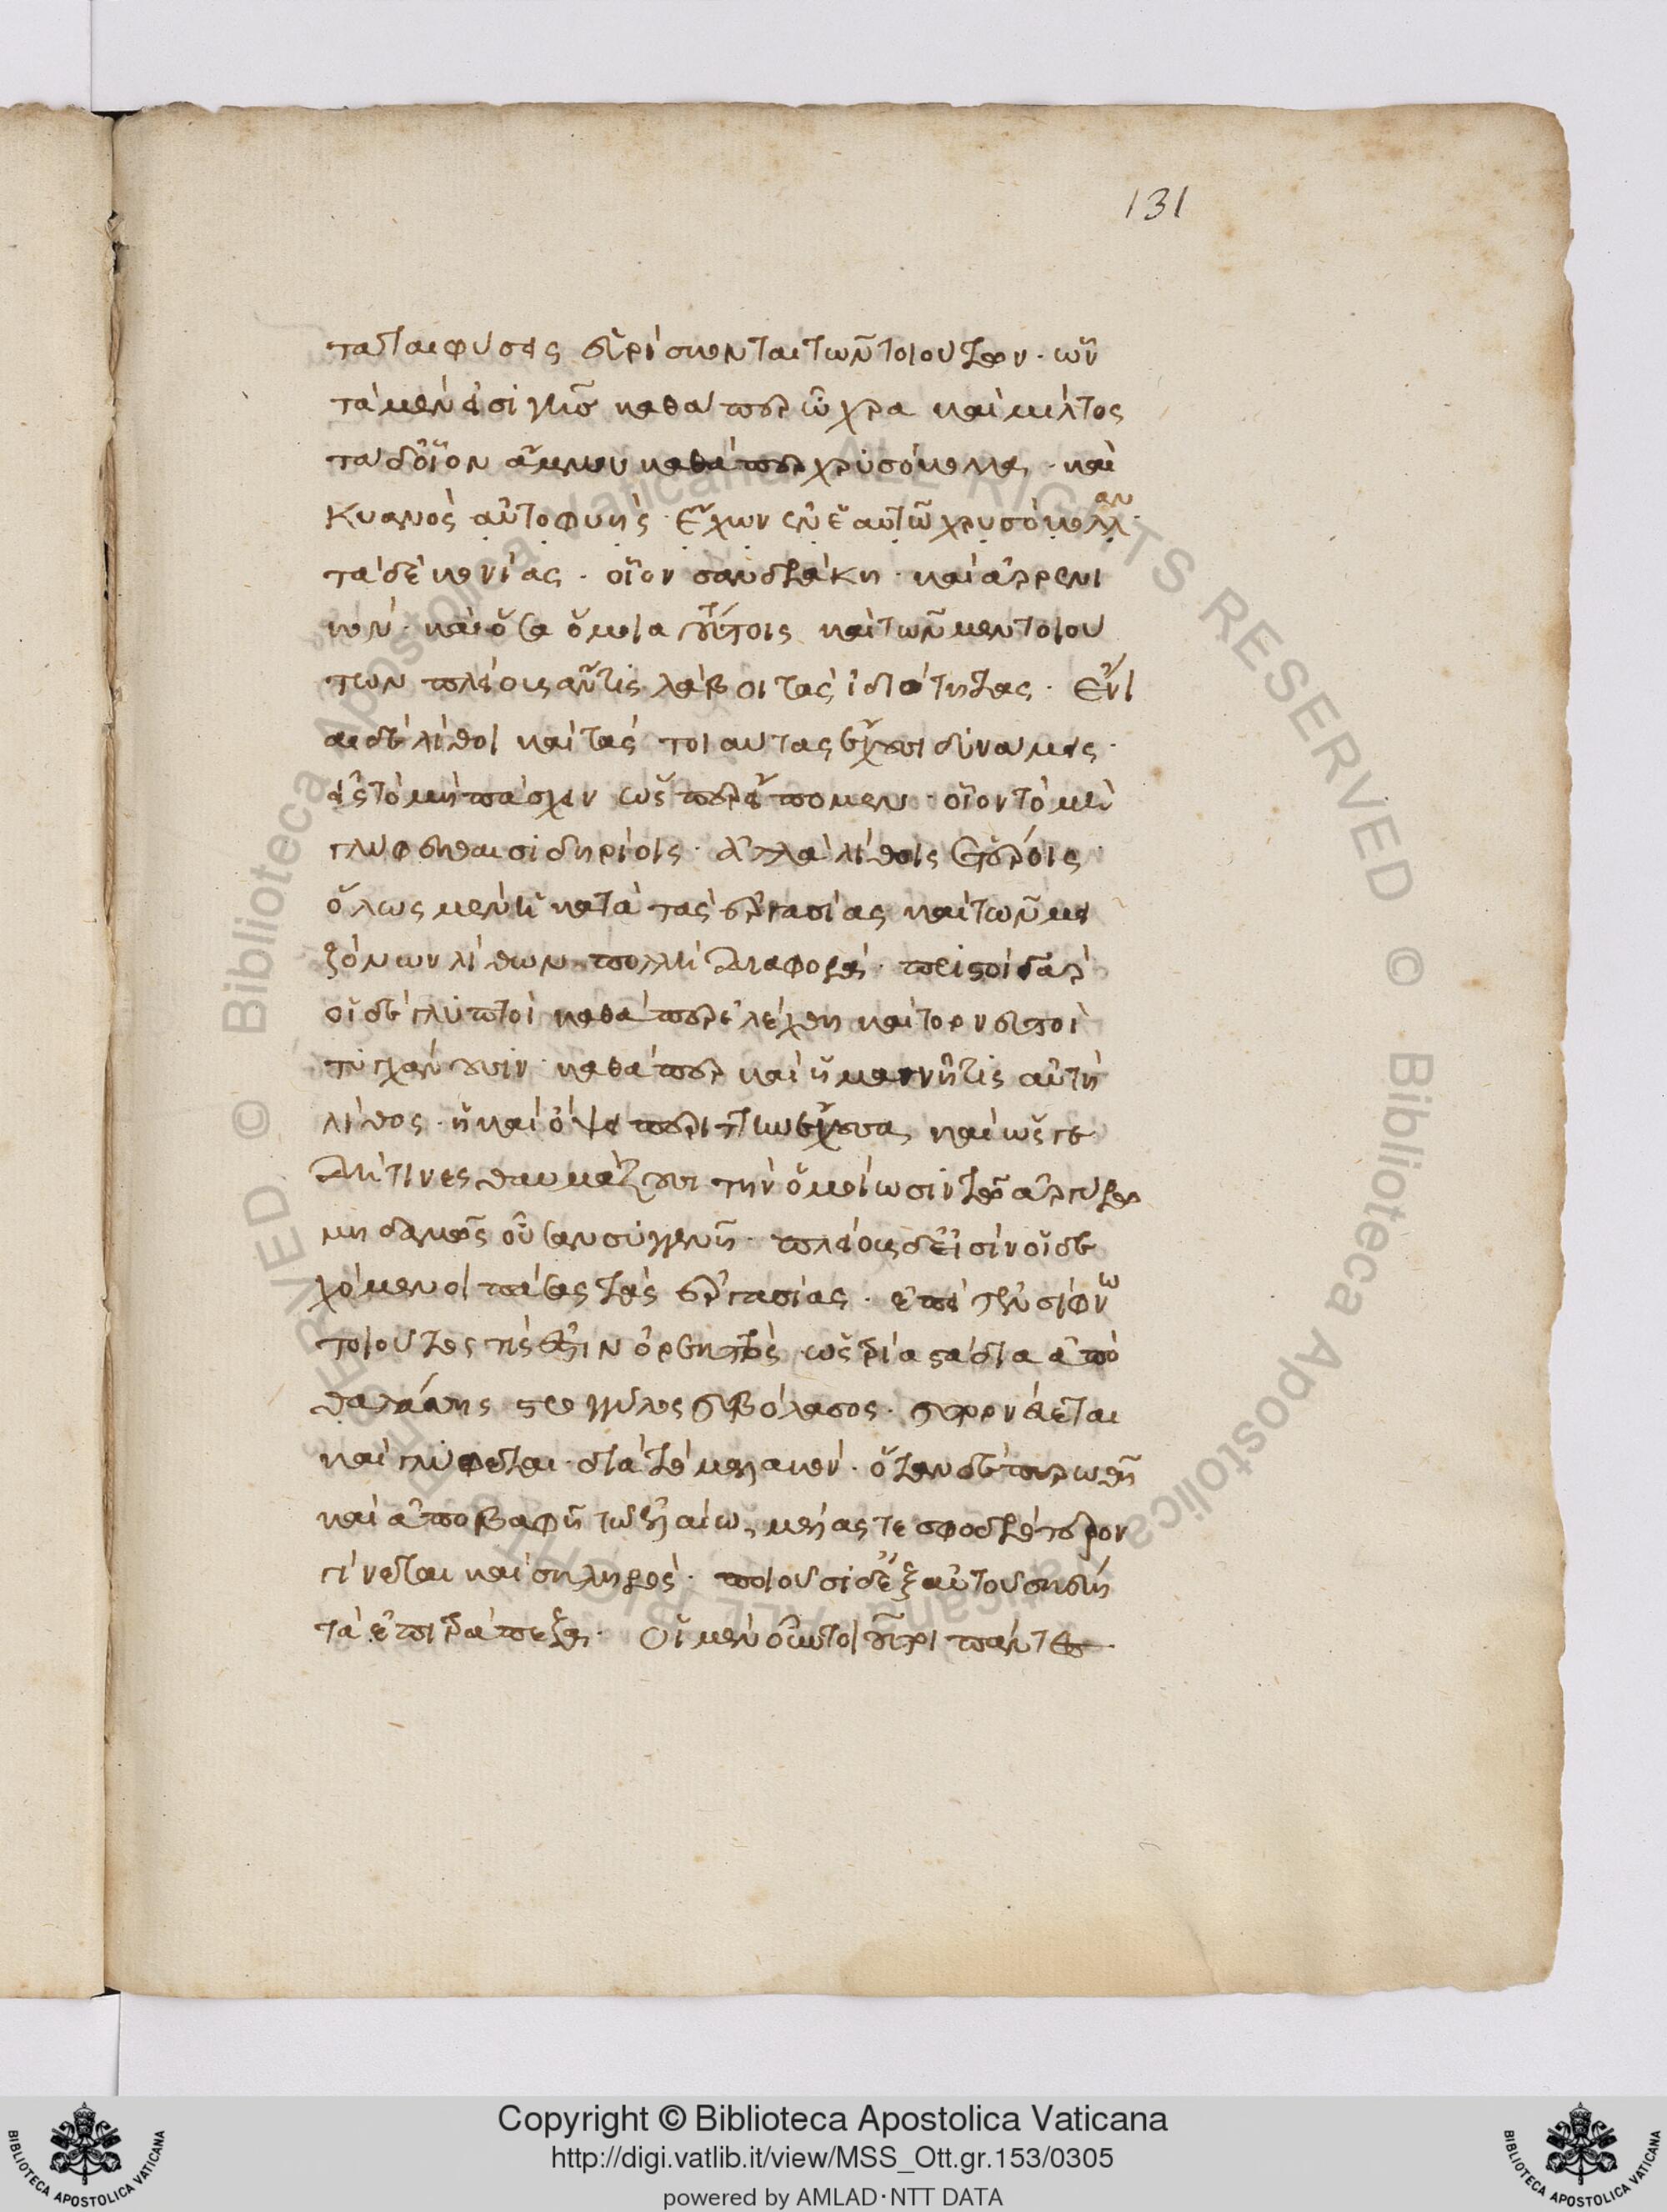 131
ταται φύσεις εὑρίσκονται τῶν τοιούτων· ὧν
τὰ μὲν εἰσὶ γῆς καθάπερ ὤχρα καὶ μίλτος
τὰ δ' οἷον ἄμμου καθάπερ χρυσόκολλα· καὶ
κυανὸς αὐτοφυὴς· ἔχων ἐν ἑαυτῶ χρυσόκολλαν·
τὰ δὲ κονίας· οἷον σανδαράκη· καὶ ἀρρενι
κόν· καὶ ὅσα ὅμοια τούτοις καὶ τῶν μεν τοιου
των πλείους ἄν τις λάβοι τὰς ἰδιότητας· Ἔνι
αι δὲ λίθοι καὶ τὰς τοιαύτας ἔχουσι δυνάμεις·
εἰς τὸ μὴ πάσχειν ὡς προείπομεν· οἷον τὸ μὴ
γλύφεσθαι σιδηρίοις· ἀλλὰ λίθοις ἑτέροις·
ὅλως μὲν ἡ κατὰ τὰς ἐργασίας καὶ τῶν μει
ζόνων λίθων πολλὴ διαφορά· πριστοὶ γὰρ
οἱ δὲ γλυπτοὶ καθάπερ ἐλέχθη καὶ τορνευτοὶ
τυγχάνουσιν· καθάπερ καὶ ἡ μαγνῆτις αὐτὴ
λίθος· ἣ καὶ ὄψει περιττὸν ἔχουσα, καὶ ὥς γε
δή τινες θαυμάζουσι τὴν ὁμοίωσιν τῶ ἀργύρω
μηδαμῶς οὖσαν συγγενῆ· πλείους δ' εἰσὶν οἱ δε
χόμενοι πάσας τὰς ἐργασίας· ἐπεὶ καὶ ἐν σίφνω
τοιοῦτός τίς ἐστιν ὀρυκτὸς ὡς τρία στάδια ἀπὸ
θαλάττης στρογγύλος καὶ βώλασος· καὶ τορνεύεται
καὶ γλύφεται διὰ τὸ μαλακόν· ὅταν δὲ πυρωθῆ
καὶ ἀποβαφῆ τῶ ἐλαίω, μέλας τε σφοδρότερον
γίνεται καὶ σκληρὸς· ποιοῦσι δ' ἐξ αὐτοῦ σκεύη
τὰ ἐπιτράπεζα· Οἱ μὲν οὖν τοιοῦτοι πάντες
Copyright © Biblioteca Apostolica Vaticana
http://digi.vatlib.it/view/MSS_Ott.gr.153/0305
powered by AMLAD·NTT DATA